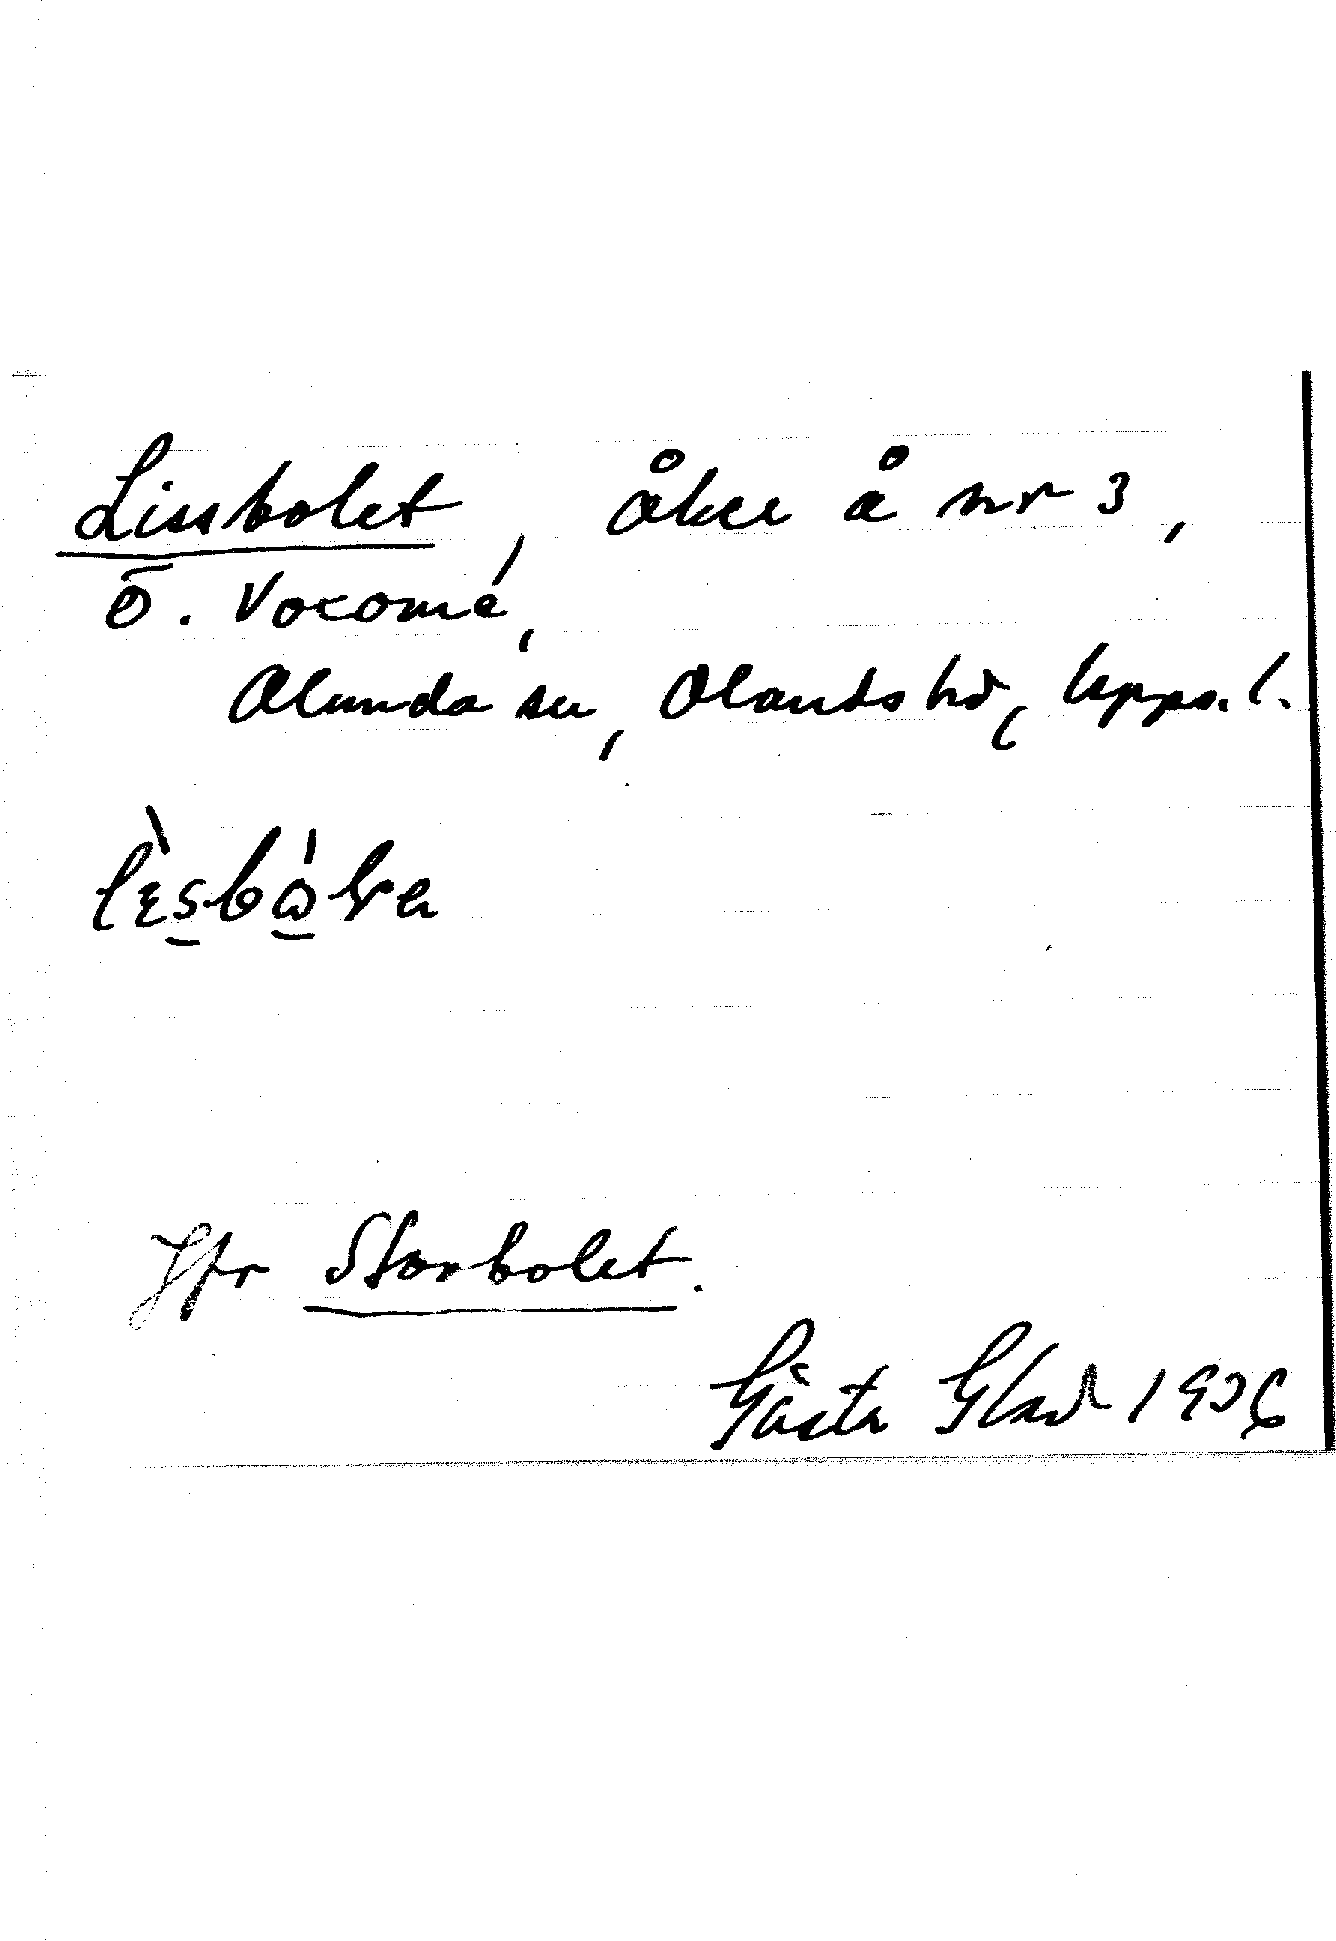 Lissbolet, åker å nr 3,
Ö. Vocomé,
Alunda sn, Olands hd, Upps. l.
Jfr Storbolet.
Gösta Glad 1936